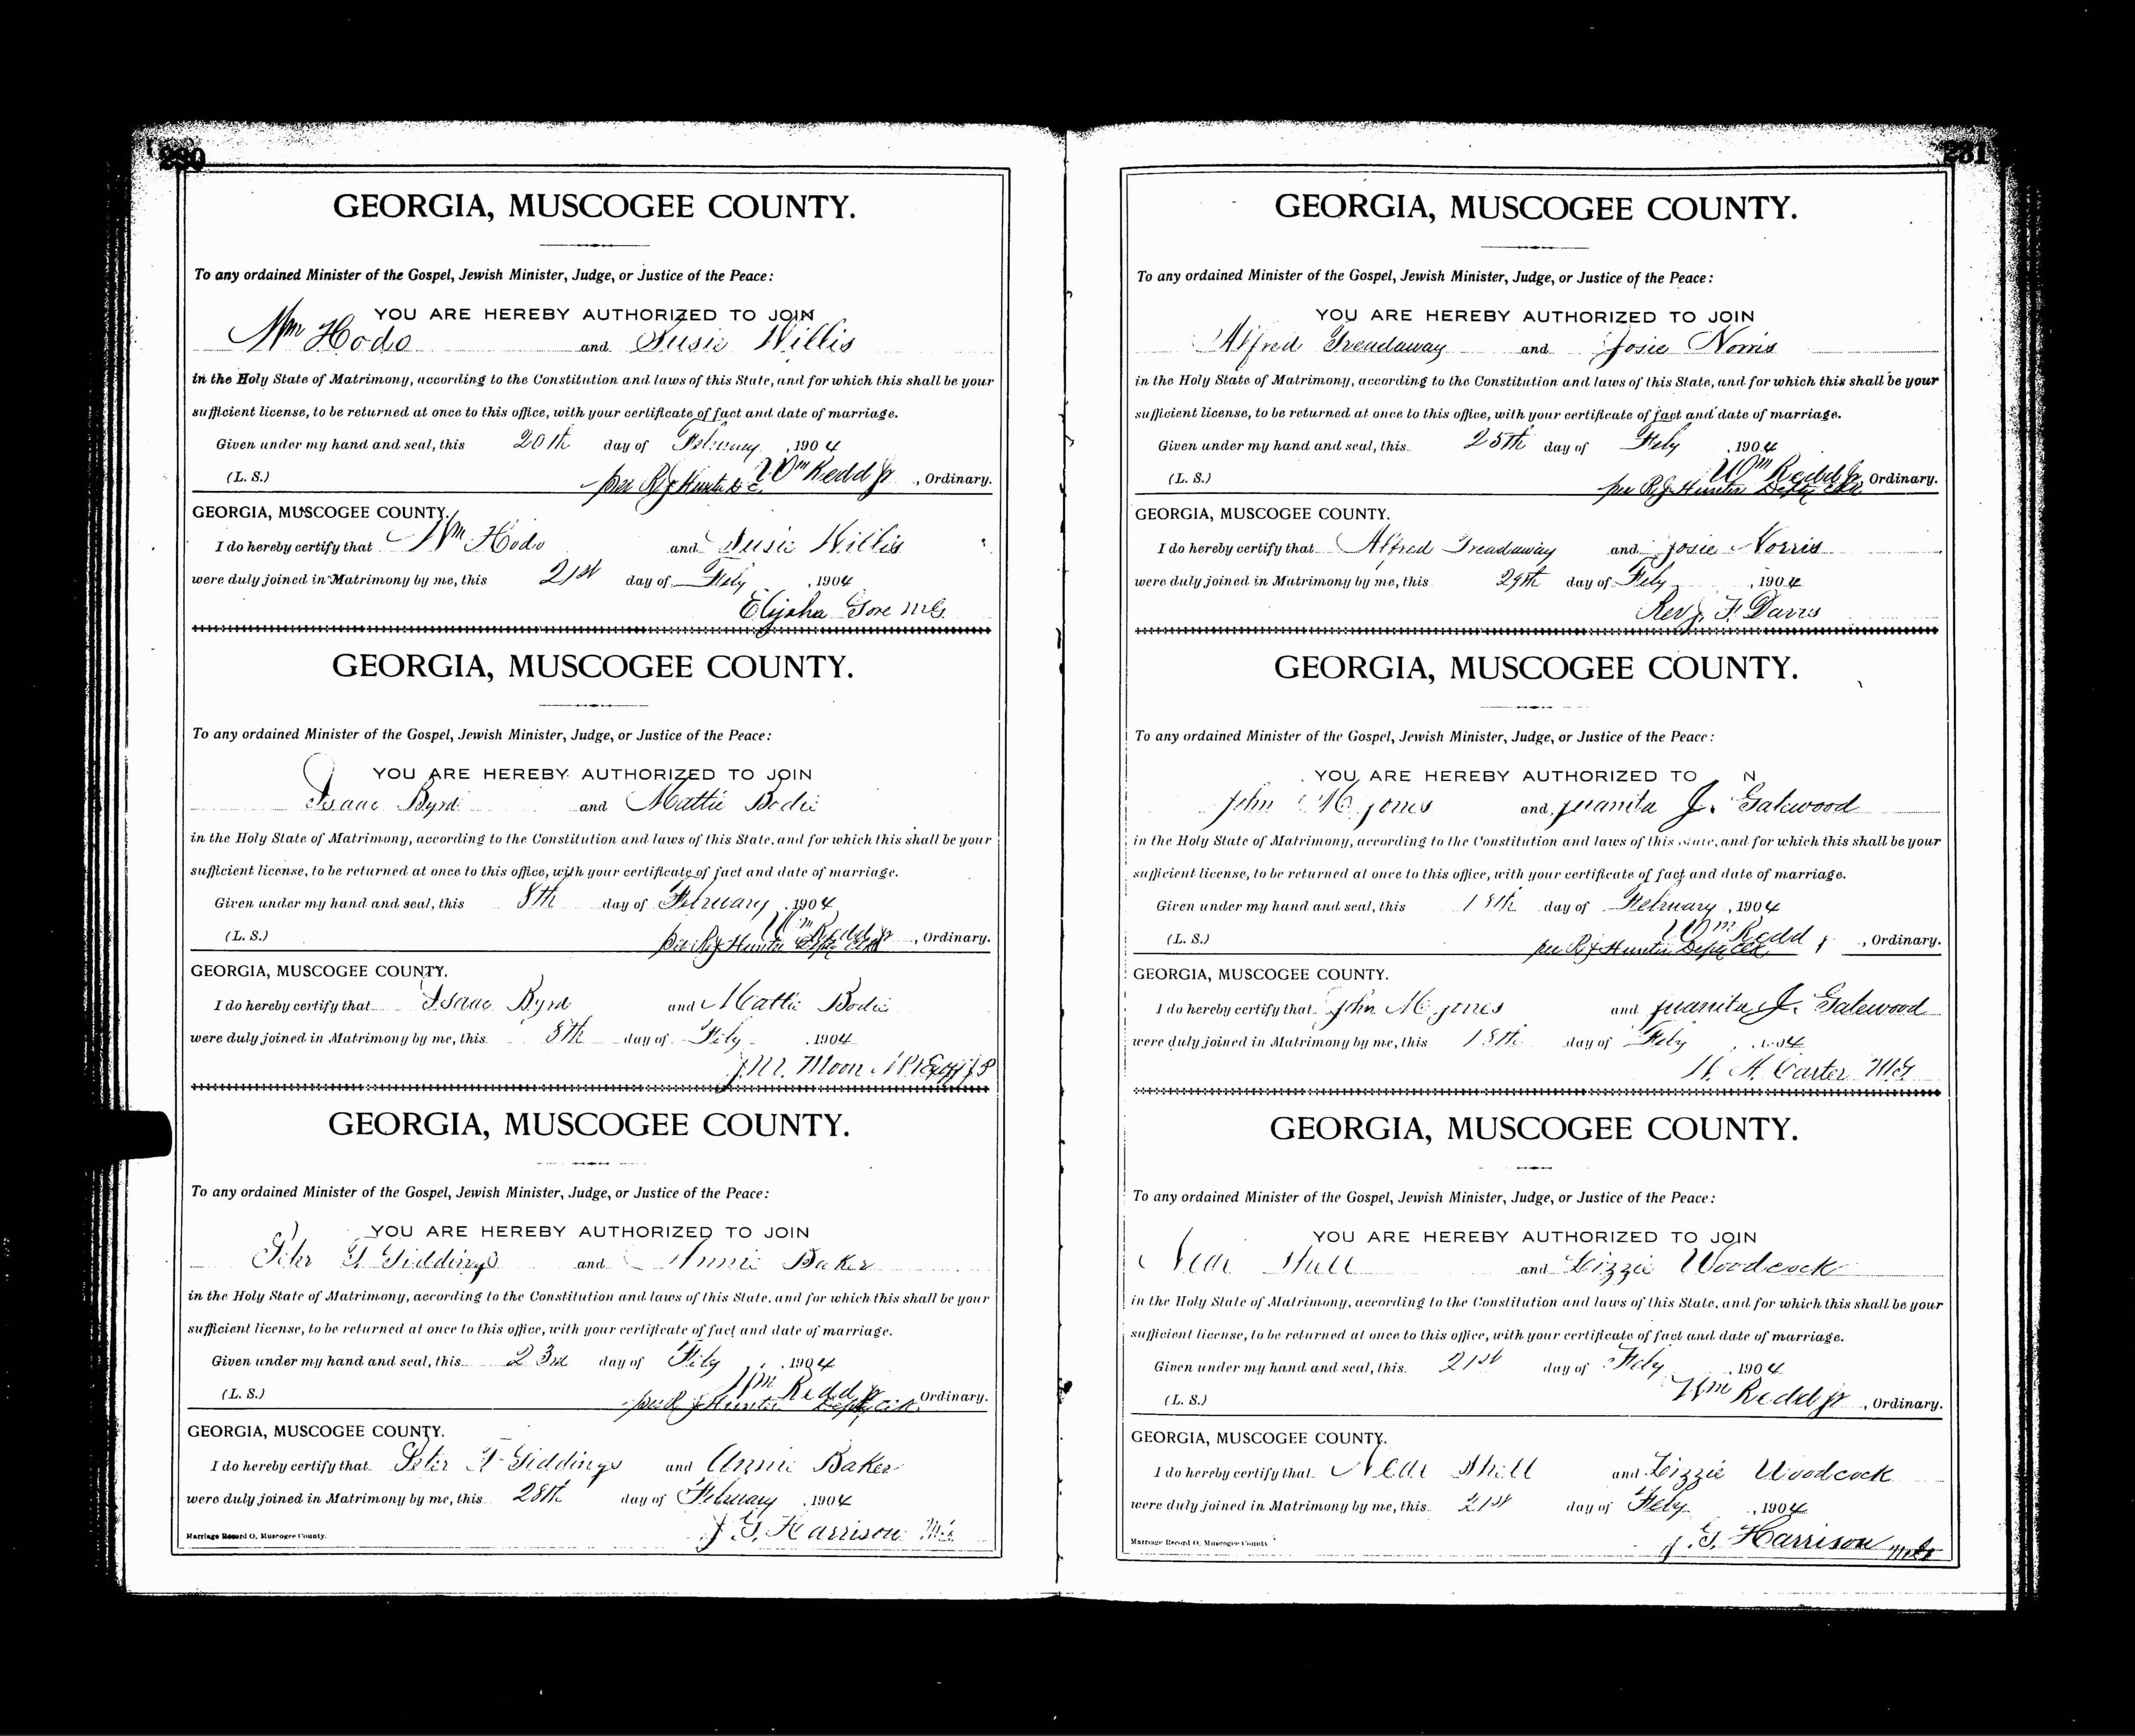 230
GEORGIA, MUSCOGEE COUNTY.
To any ordained Minister of the Gospel, Jewish Minister, Judge, or Justice of the Peace:
YOU ARE HEREBY AUTHORIZED TO JOIN
Wm Hodo and Susie Willis
in the Holy State of Matrimony, according to the Constitution and laws of this State, and for which this shall be your
sufficient license, to be returned at once to this office, with your certificate of fact and date of marriage.
Given under my hand and seal, this 20th day of February, 1904
(L. S.) per R J Hunter D C. Wm Redd Jr, Ordinary.
GEORGIA, MUSCOGEE COUNTY.
I do hereby certify that Wm Hodo and Susie Willis
were duly joined in Matrimony by me, this 21st day of Feby, 1904
Elijaha Gore M.G.
GEORGIA, MUSCOGEE COUNTY.
To any ordained Minister of the Gospel, Jewish Minister, Judge, or Justice of the Peace:
YOU ARE HEREBY AUTHORIZED TO JOIN
Isaac Byrd and Mattie Bodie
in the Holy State of Matrimony, according to the Constitution and laws of this State, and for which this shall be your
sufficient license, to be returned at once to this office, with your certificate of fact and date of marriage.
Given under my hand and seal, this 8th day of February, 1904
(L. S.) Per R J Hunter Depty Clk Wm Redd Jr, Ordinary.
GEORGIA, MUSCOGEE COUNTY.
I do hereby certify that Isaac Byrd and Mattie Bodie
were duly joined in Matrimony by me, this 8th day of Feby, 1904
J. M. Moon
GEORGIA, MUSCOGEE COUNTY.
To any ordained Minister of the Gospel, Jewish Minister, Judge, or Justice of the Peace:
YOU ARE HEREBY AUTHORIZED TO JOIN
Peter T Giddings and Annie Baker
in the Holy State of Matrimony, according to the Constitution and laws of this State, and for which this shall be your
sufficient license, to be returned at once to this office, with your certificate of fact and date of marriage.
Given under my hand and seal, this 23rd day of Feby, 1904
(L. S.) per R J Hunter Depty Clk Wm Redd Jr Ordinary.
GEORGIA, MUSCOGEE COUNTY.
I do hereby certify that Peter T Giddings and Annie Baker
were duly joined in Matrimony by me, this 28th day of February, 1904
J. G. Harrison M.G.
Marriage Record O, Muscogee County.
231
GEORGIA, MUSCOGEE COUNTY.
To any ordained Minister of the Gospel, Jewish Minister, Judge, or Justice of the Peace:
YOU ARE HEREBY AUTHORIZED TO JOIN
Alfred Treadaway and Josie Norris
in the Holy State of Matrimony, according to the Constitution and laws of this State, and for which this shall be your
sufficient license, to be returned at once to this office, with your certificate of fact and date of marriage.
Given under my hand and seal, this 25th day of Feby, 1904
(L. S.) per R J Hunter Depty Clk Wm Redd Jr, Ordinary.
GEORGIA, MUSCOGEE COUNTY.
I do hereby certify that Alfred Treadaway and Josie Norris
were duly joined in Matrimony by me, this 29th day of Feby, 1904
Rev J. F. Davis
GEORGIA, MUSCOGEE COUNTY.
To any ordained Minister of the Gospel, Jewish Minister, Judge, or Justice of the Peace:
YOU ARE HEREBY AUTHORIZED TO N
John M Jones and Juanita J. Gatewood
in the Holy State of Matrimony, according to the Constitution and laws of this State, and for which this shall be your
sufficient license, to be returned at once to this office, with your certificate of fact and date of marriage.
Given under my hand and seal, this 18th day of February, 1904
(L. S.) per R J Hunter Depty Clk Wm Redd Jr, Ordinary.
GEORGIA, MUSCOGEE COUNTY.
I do hereby certify that John M Jones and Juanita J. Gatewood
were duly joined in Matrimony by me, this 18th day of Feby, 1904
Carter M.G.
GEORGIA, MUSCOGEE COUNTY.
To any ordained Minister of the Gospel, Jewish Minister, Judge, or Justice of the Peace:
YOU ARE HEREBY AUTHORIZED TO JOIN
and Lizzie Woodcock
in the Holy State of Matrimony, according to the Constitution and laws of this State, and for which this shall be your
sufficient license, to be returned at once to this office, with your certificate of fact and date of marriage.
Given under my hand and seal, this 21st day of Feby, 1904
(L. S.) Wm Redd Jr, Ordinary.
GEORGIA, MUSCOGEE COUNTY.
I do hereby certify that and Lizzie Woodcock
were duly joined in Matrimony by me, this 21st day of Feby, 1904
J. G. Harrison
Marriage Record O, Muscogee County